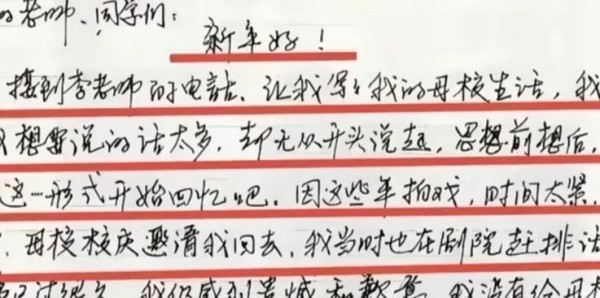 的老师、同学们:
新年好!
接到李老师的电话,让我写我的母校生活,我
想要说的话太多,却无从开头说起,思想前想后,
这一形式开始回忆吧.因这些年拍戏,时间太紧,
母校校庆邀请我回去,我当时也在剧院赶排话
我仍感到遗憾和歉意 我没有给母校